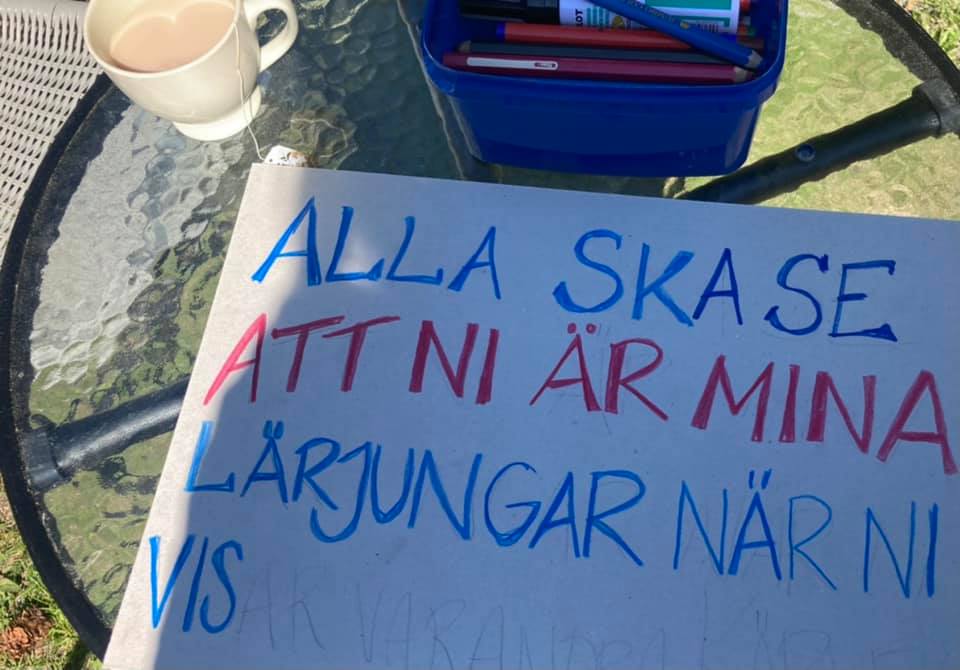 PILOT
ALLA SKA SE
ATT NI ÄR MINA
LÄRJUNGAR NÄR NI
VISAR VARANDRA